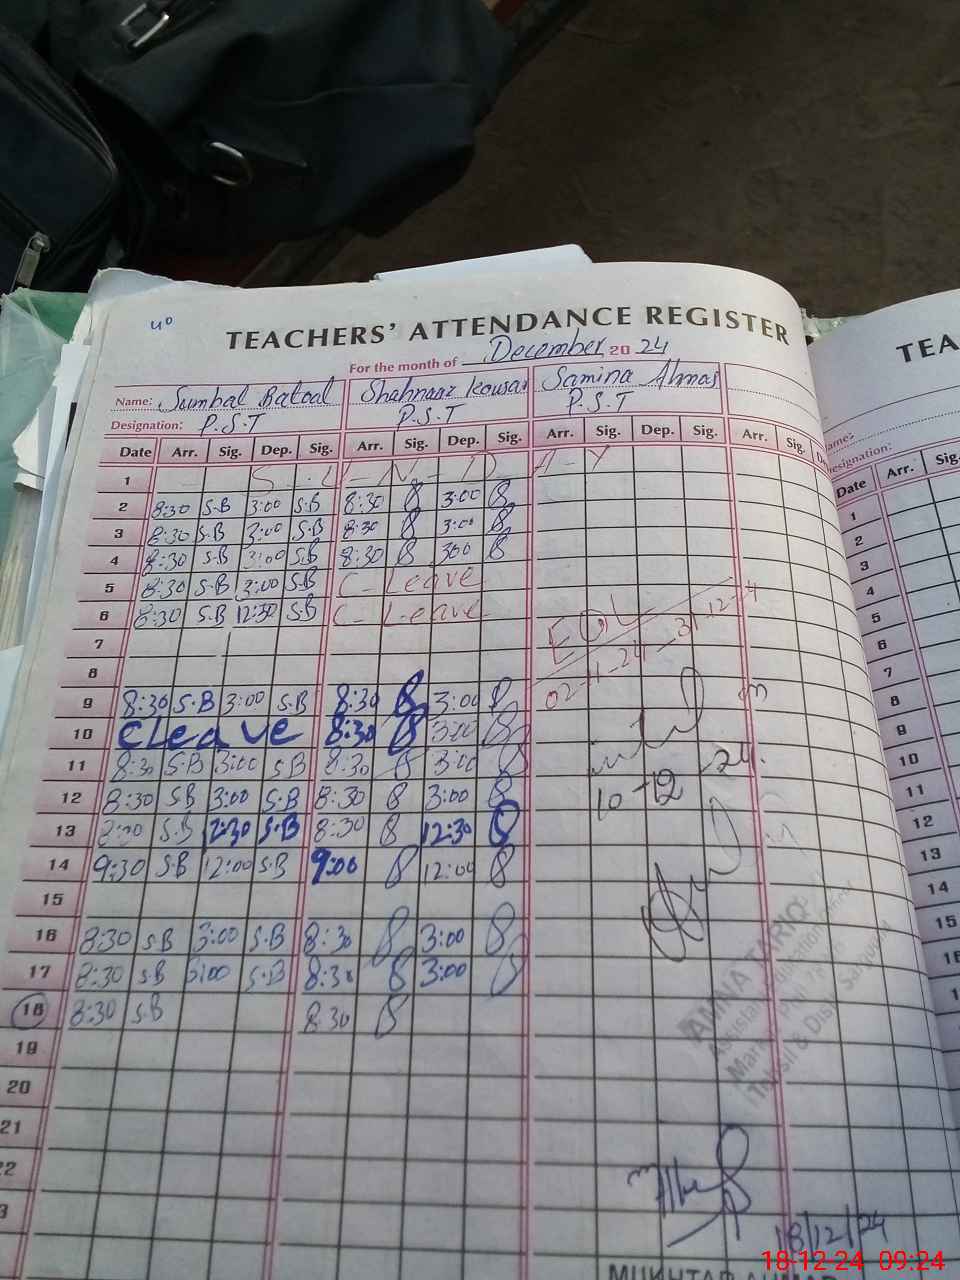 40
TEACHERS' ATTENDANCE REGISTER
For the month of December 2024
Name: Sumbal Batool Shahnaaz Kousar Samina Ahmas
Designation: P.S.T P.S.T P.S.T
Date Arr. Sig. Dep. Sig. Arr. Sig. Dep. Sig. Arr. Sig. Dep. Sig. Arr. Sig.
1 S-U-N-D-A-Y
2 8:30 S-B 3:00 S-B 8:30 3:00
3 8:30 S-B 3:00 S-B 8:30 3:00
4 8:30 S-B 3:00 S-B 8:30 300
5 8:30 S-B 3:00 S-B C-Leave
6 8:30 S-B 12:30 S-B C-Leave
EOL
02-11-24 - 31-12-24
7
8
9 8:30 S-B 3:00 S-B 8:30 3:00
10 cLeave 8:30 3:00
11 8:30 S-B 3:00 S-B 8:30 3:00
10-12-24.
12 8:30 S-B 3:00 S-B 8:30 3:00
13 8:30 S-B 12:30 S-B 8:30 12:30
14 9:30 S-B 12:00 S-B 9:00 12:00
15
16 8:30 S-B 3:00 S-B 8:30 3:00
17 8:30 S-B 3:00 S-B 8:30 3:00
18 8:30 S-B 8:30
AMNA TARIQ
Assistant Education Officer
Tehsil & Distt. Sargodha
19
20
21
22
18/12/24
TEA
Name:
Designation:
Date Arr. Sig.
1
2
3
4
5
6
7
8
9
10
11
12
13
14
15
16
17
18
19
20
18-12-24 09:24